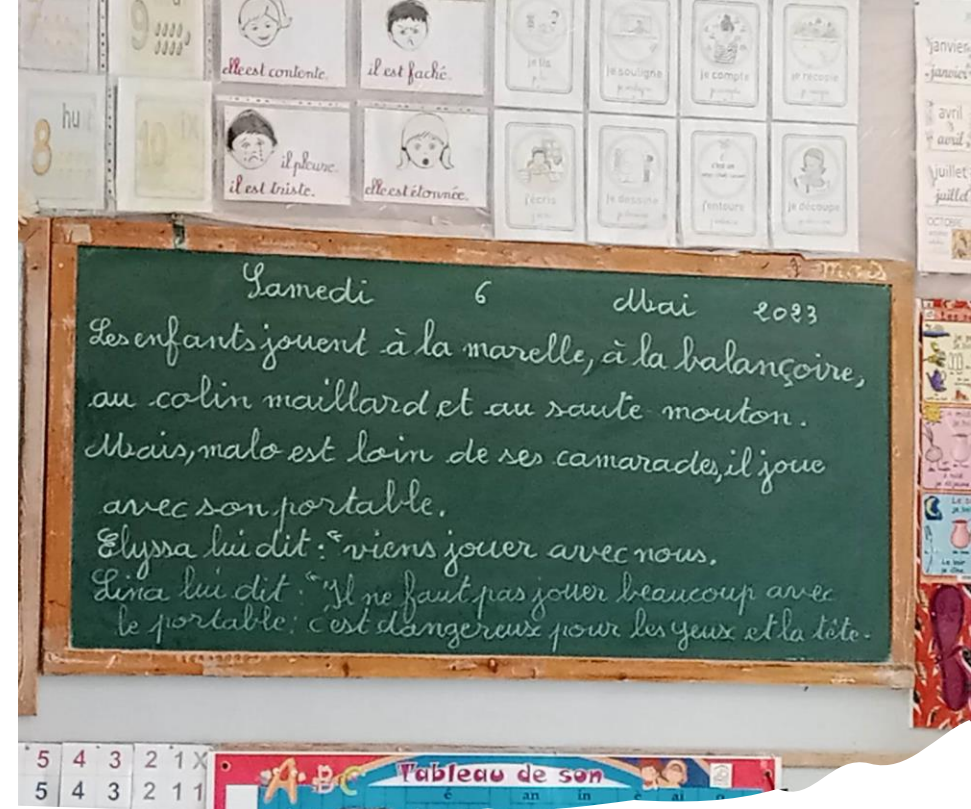 9
elle est contente.
il est faché.
je lis
je souligne
je compte
je recopie
janvier
janvier
8 hu
10 ix
il pleure.
il est triste.
elle est étonnée.
j'écris
je dessine
j'entoure
je découpe
avril
avril
juillet
juillet
OCTOBRE
Samedi 6 Mai 2023
Les enfants jouent à la marelle, à la balançoire,
au colin maillard et au saute mouton.
Mais, malo est loin de ses camarades, il joue
avec son portable.
Elyssa lui dit : "viens jouer avec nous.
Lina lui dit : "Il ne faut pas jouer beaucoup avec
le portable : c'est dangereux pour les yeux et la tête.
5 4 3 2 1 X
5 4 3 2 1 1
A B C Tableau de son
é an in è ai o